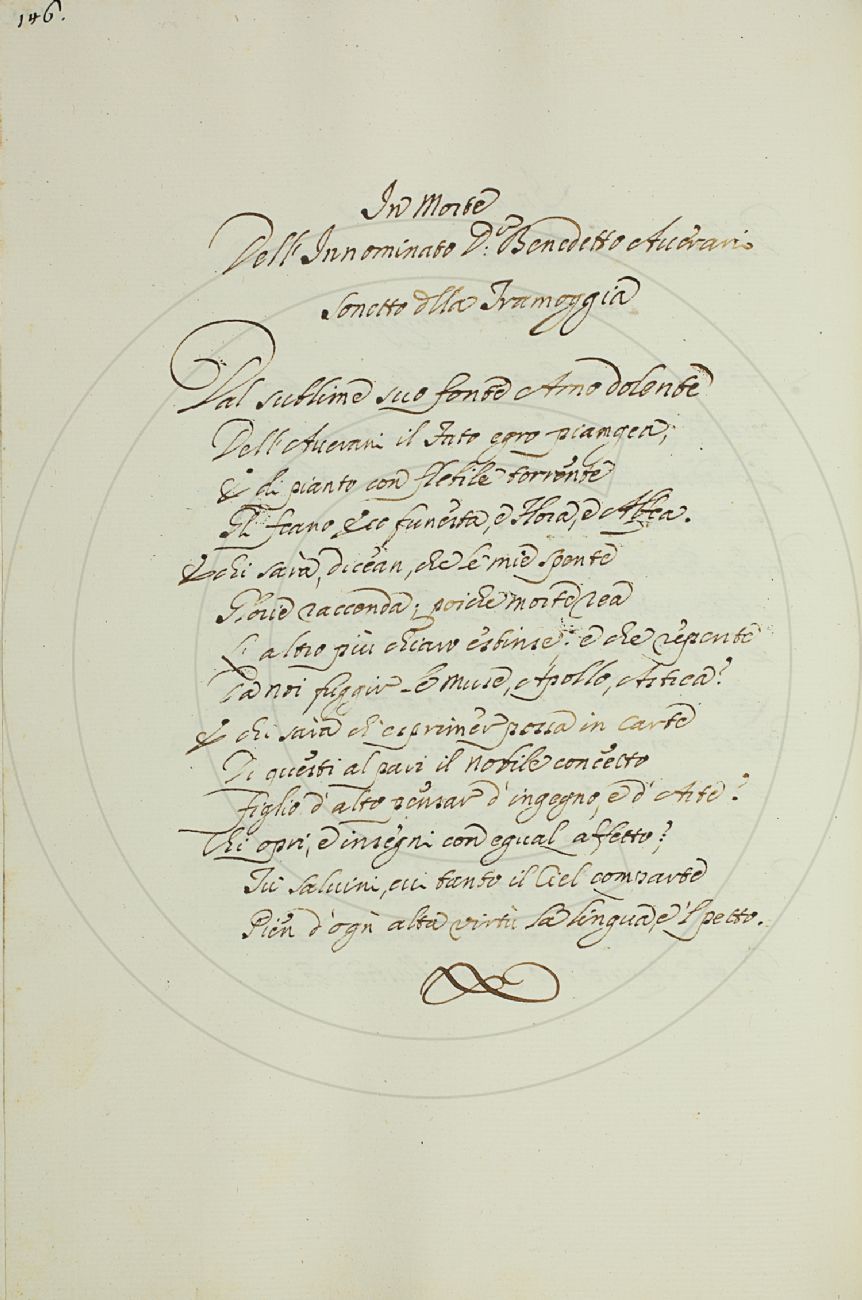 146.
In Morte
Dell'Innominato D.r Benedetto Averani
Sonetto della Tramoggia
Dal sublime suo fonte Arno dolente
Dell'Averani il Fato egro piangea;
E di pianto con flebile torrente
Gli feano Eco funesta, e Flora, e Alfea.
E chi sarà, dicean, che le mie spente
Glorie raccenda; poiche morte rea
L'altro più chiaro estinse: e che repente
Da noi fuggir le Muse, Apollo, Astrea?
E chi sarà ch'esprimer possa in Carte
Di questi al pari il nobile concetto
Figlio d'alto pensar d'ingegno, e d'Arte?
Chi opri, e insegni con egual affetto?
Tù Salvini, cui tanto il Ciel comparte
Pien d'ogn'alta virtù la lingua, e 'l petto.